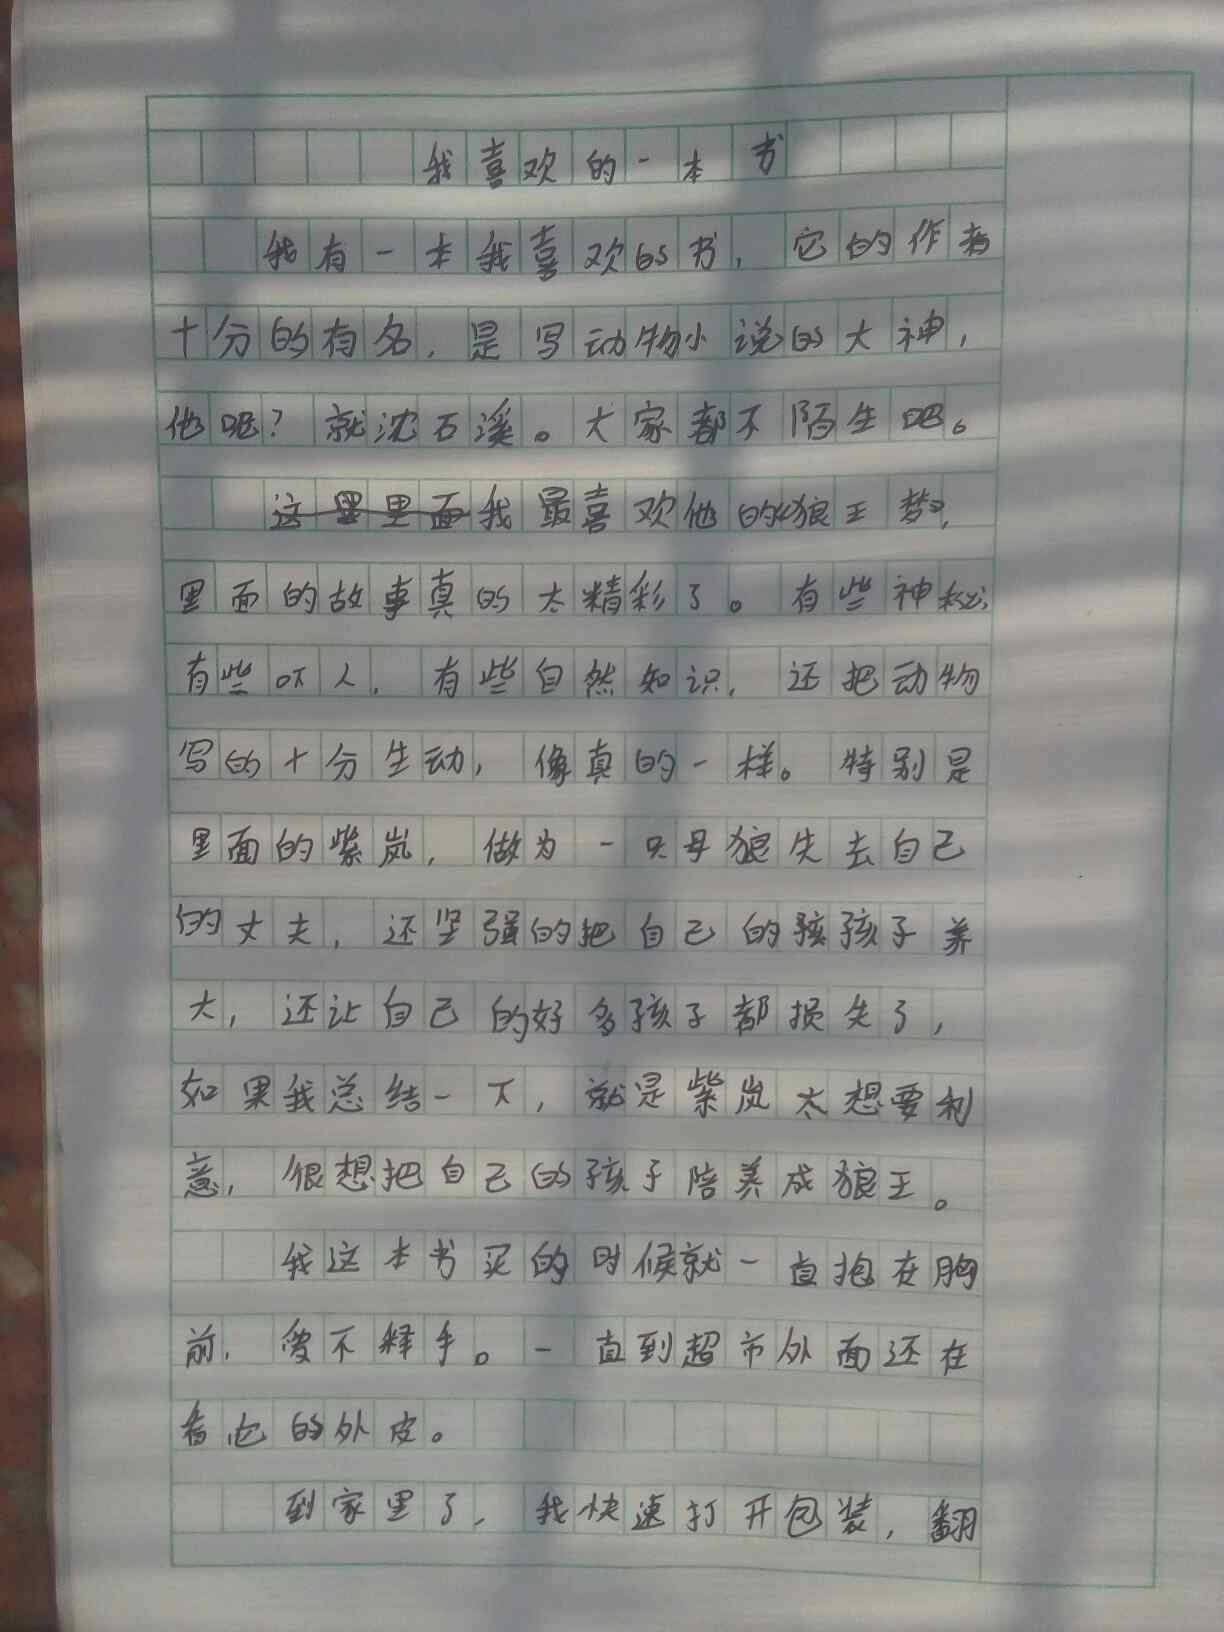 我喜欢的一本书
我有一本我喜欢的书，它的作者
十分的有名，是写动物小说的大神，
他呢？就沈石溪。大家都不陌生吧。
这里里面我最喜欢他的《狼王梦》，
里面的故事真的太精彩了。有些神秘，
有些吓人，有些自然知识，还把动物
写的十分生动，像真的一样。特别是
里面的紫岚，做为一只母狼失去自己
的丈夫，还坚强的把自己的孩孩子养
大，还让自己的好多孩子都损失了，
如果我总结一下，就是紫岚太想要利
意，很想把自己的孩子陪养成狼王。
我这本书买的时候就一直抱在胸
前，爱不释手。一直到超市外面还在
看它的外皮。
到家里了，我快速打开包装，翻